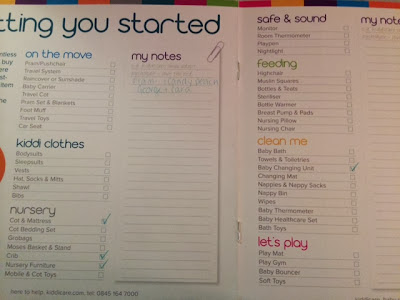 tting you started
on the move
Pram/Pushchair
Travel System
Raincover or Sunshade
Baby Carrier
Travel Cot
Pram Set & Blankets
Foot Muff
Travel Toys
Car Seat
kiddi clothes
Bodysuits
Sleepsuits
Vests
Hat, Socks & Mitts
Shawl
Bibs
nursery
Cot & Mattress
Cot Bedding Set
Grobags
Moses Basket & Stand
Crib
Nursery Furniture
Mobile & Cot Toys
here to help. kiddicare.com tel: 0845 144 7000
my notes
safe & sound
Monitor
Room Thermometer
Playpen
Nightlight
feeding
Highchair
Muslin Squares
Bottles & Teats
Steriliser
Bottle Warmer
Breast Pump & Pads
Nursing Pillow
Nursing Chair
clean me
Baby Bath
Towels & Toiletries
Baby Changing Unit
Changing Mat
Nappies & Nappy Socks
Nappy Bin
Wipes
Baby Thermometer
Baby Healthcare Set
Bath Toys
let's play
Play Mat
Play Gym
Baby Bouncer
Soft Toys
my no